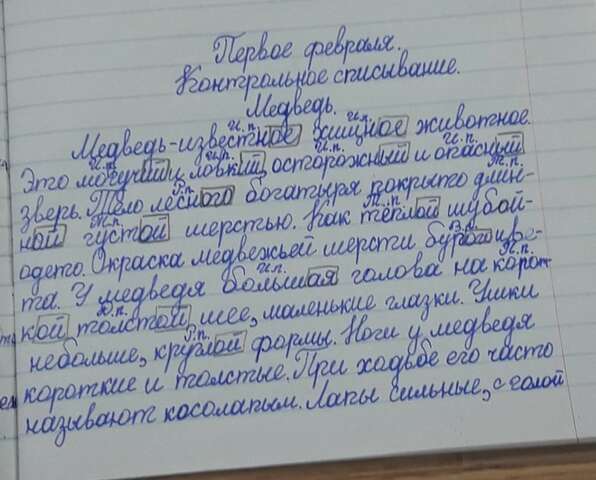 Первое февраля.
Контрольное списывание.
Медведь.
И.п. И.п.
Медведь-известное хищное животное.
И.п. И.п. И.п. И.п.
Это могучий, ловкий, осторожный и опасный
Р.п. Т.п.
зверь. Тело лесного богатыря покрыто длин-
Т.п. Т.п.
ной густой шерстью. Как тёплой шубой-
одето. Окраска медвежьей шерсти бурого цве-
И.п.
та. У медведя большая голова на корот-
кой толстой шее, маленькие глазки. Ушки
Р.п.
небольше, круглой формы. Ноги у медведя
короткие и толстые. При ходьбе его часто
называют косолапым. Лапы сильные, с голой